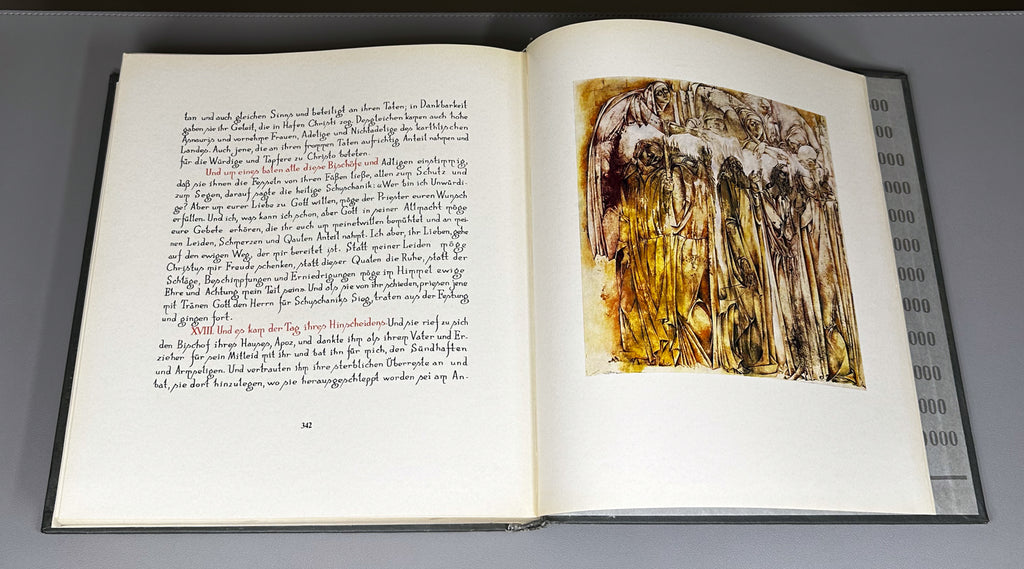 tan und auch gleichen Sinns und beteiligt an ihren Taten; in Dankbarkeit
gaben sie ihr Geleit, die in Hafen Christi zog. Desgleichen kamen auch hohe
Asnaurjs und vornehme Frauen, Adelige und Nichtadelige des karthlischen
Landes. Auch jene, die an ihren frommen Taten aufrichtig Anteil nahmen und
für die Würdige und Tapfere zu Christo beteten.
Und um eines baten alle diese Bischöfe und Adligen einstimmig,
daß sie ihnen die Fesseln von ihren Füßen ließe, allen zum Schutz und
zum Segen, darauf sagte die heilige Schuschanik: «Wer bin ich Unwürdi-
ge? Aber um eurer Liebe zu Gott willen, möge der Priester euren Wunsch
erfüllen. Und ich, was kann ich schon, aber Gott in seiner Allmacht möge
eure Gebete erhören, die ihr euch um meinetwillen bemühtet und an mei-
nen Leiden, Schmerzen und Qaulen Anteil nahmt. Ich aber, ihr Lieben, gehe
auf den ewigen Weg, der mir bereitet ist. Statt meiner Leiden möge
Christus mir Freude schenken, statt dieser Qualen die Ruhe, statt der
Schläge, Beschimpfungen und Erniedrigungen möge im Himmel ewige
Ehre und Achtung mein Teil sein». Und als sie von ihr schieden, priesen jene
mit Tränen Gott den Herrn für Schuschaniks Sieg, traten aus der Festung
und gingen fort.
XVIII. Und es kam der Tag ihres Hinscheidens. Und sie rief zu sich
den Bischof ihres Hauses, Apoz, und dankte ihm als ihrem Vater und Er-
zieher für sein Mitleid mit ihr und bat ihn für mich, den Sündhaften
und Armseligen. Und vertrauten ihm ihre sterblichen Überreste an und
bat, sie dort hinzulegen, wo sie herausgeschleppt worden sei am An-
342
00
00
000
000
000
000
000
000
000
000
000
0000